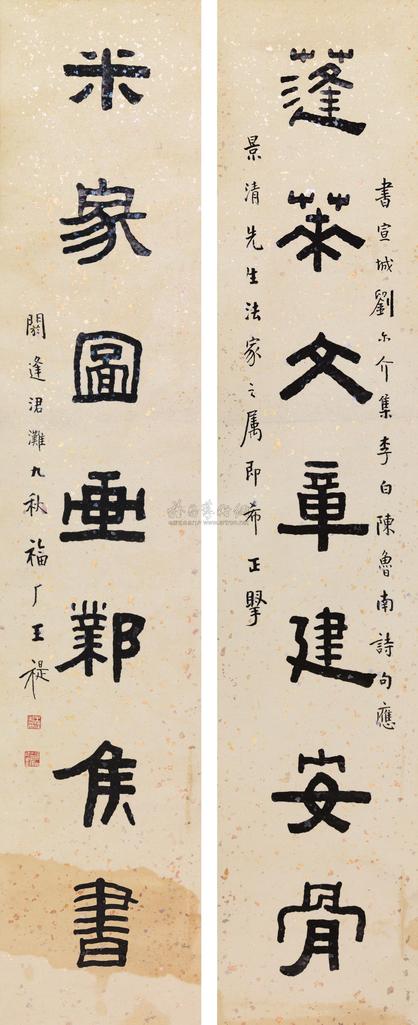 蓬萊文章建安骨
書宣城劉尒介集李白陳魯南詩句應
景清先生法家之属即希正擘
米家圖畫鄴侯書
閼逢涒灘九秋福厂王禔